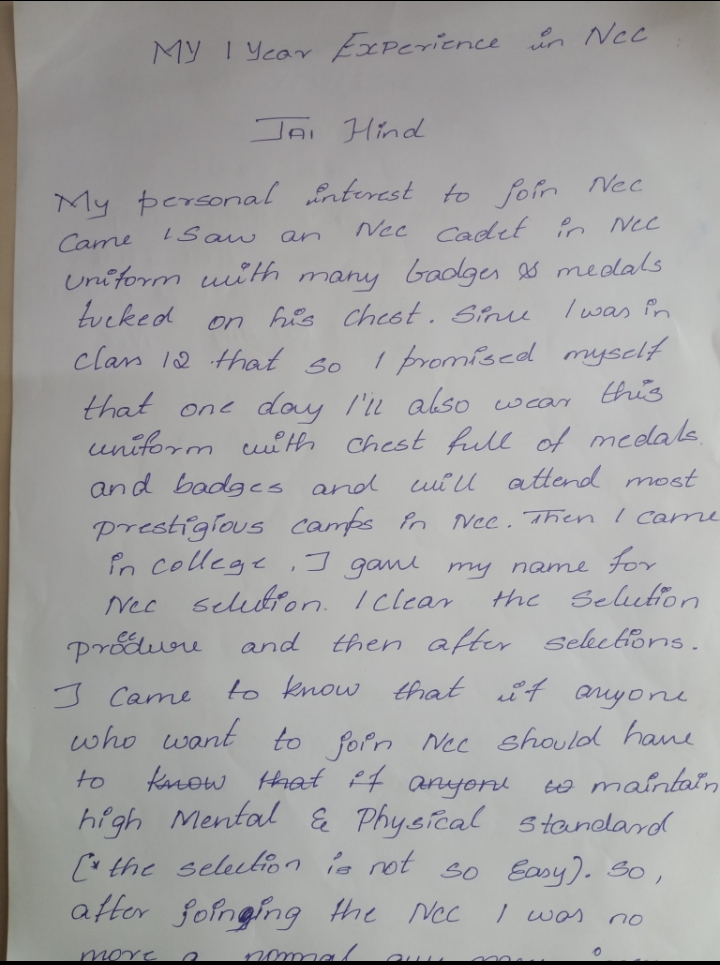 MY 1 Year Experience in Ncc
JAI Hind
My personal interest to join Ncc
Came I Saw an Ncc Cadet in Ncc
uniform with many badges & medals
tucked on his Chest. Sinu I was in
Class 12 that so I promised myself
that one day I'll also wear this
uniform with chest full of medals.
and badges and will attend most
prestigious camps in Ncc. Then I came
in college. I gave my name for
Ncc selution. I Clear the Selution
proceedure and then after selections.
I came to know that if anyone
who want to join Ncc should have
to know that if anyone to maintain
high Mental & Physical standard
(* the selection is not so Easy). So,
after joinging the Ncc I was no
more a normal